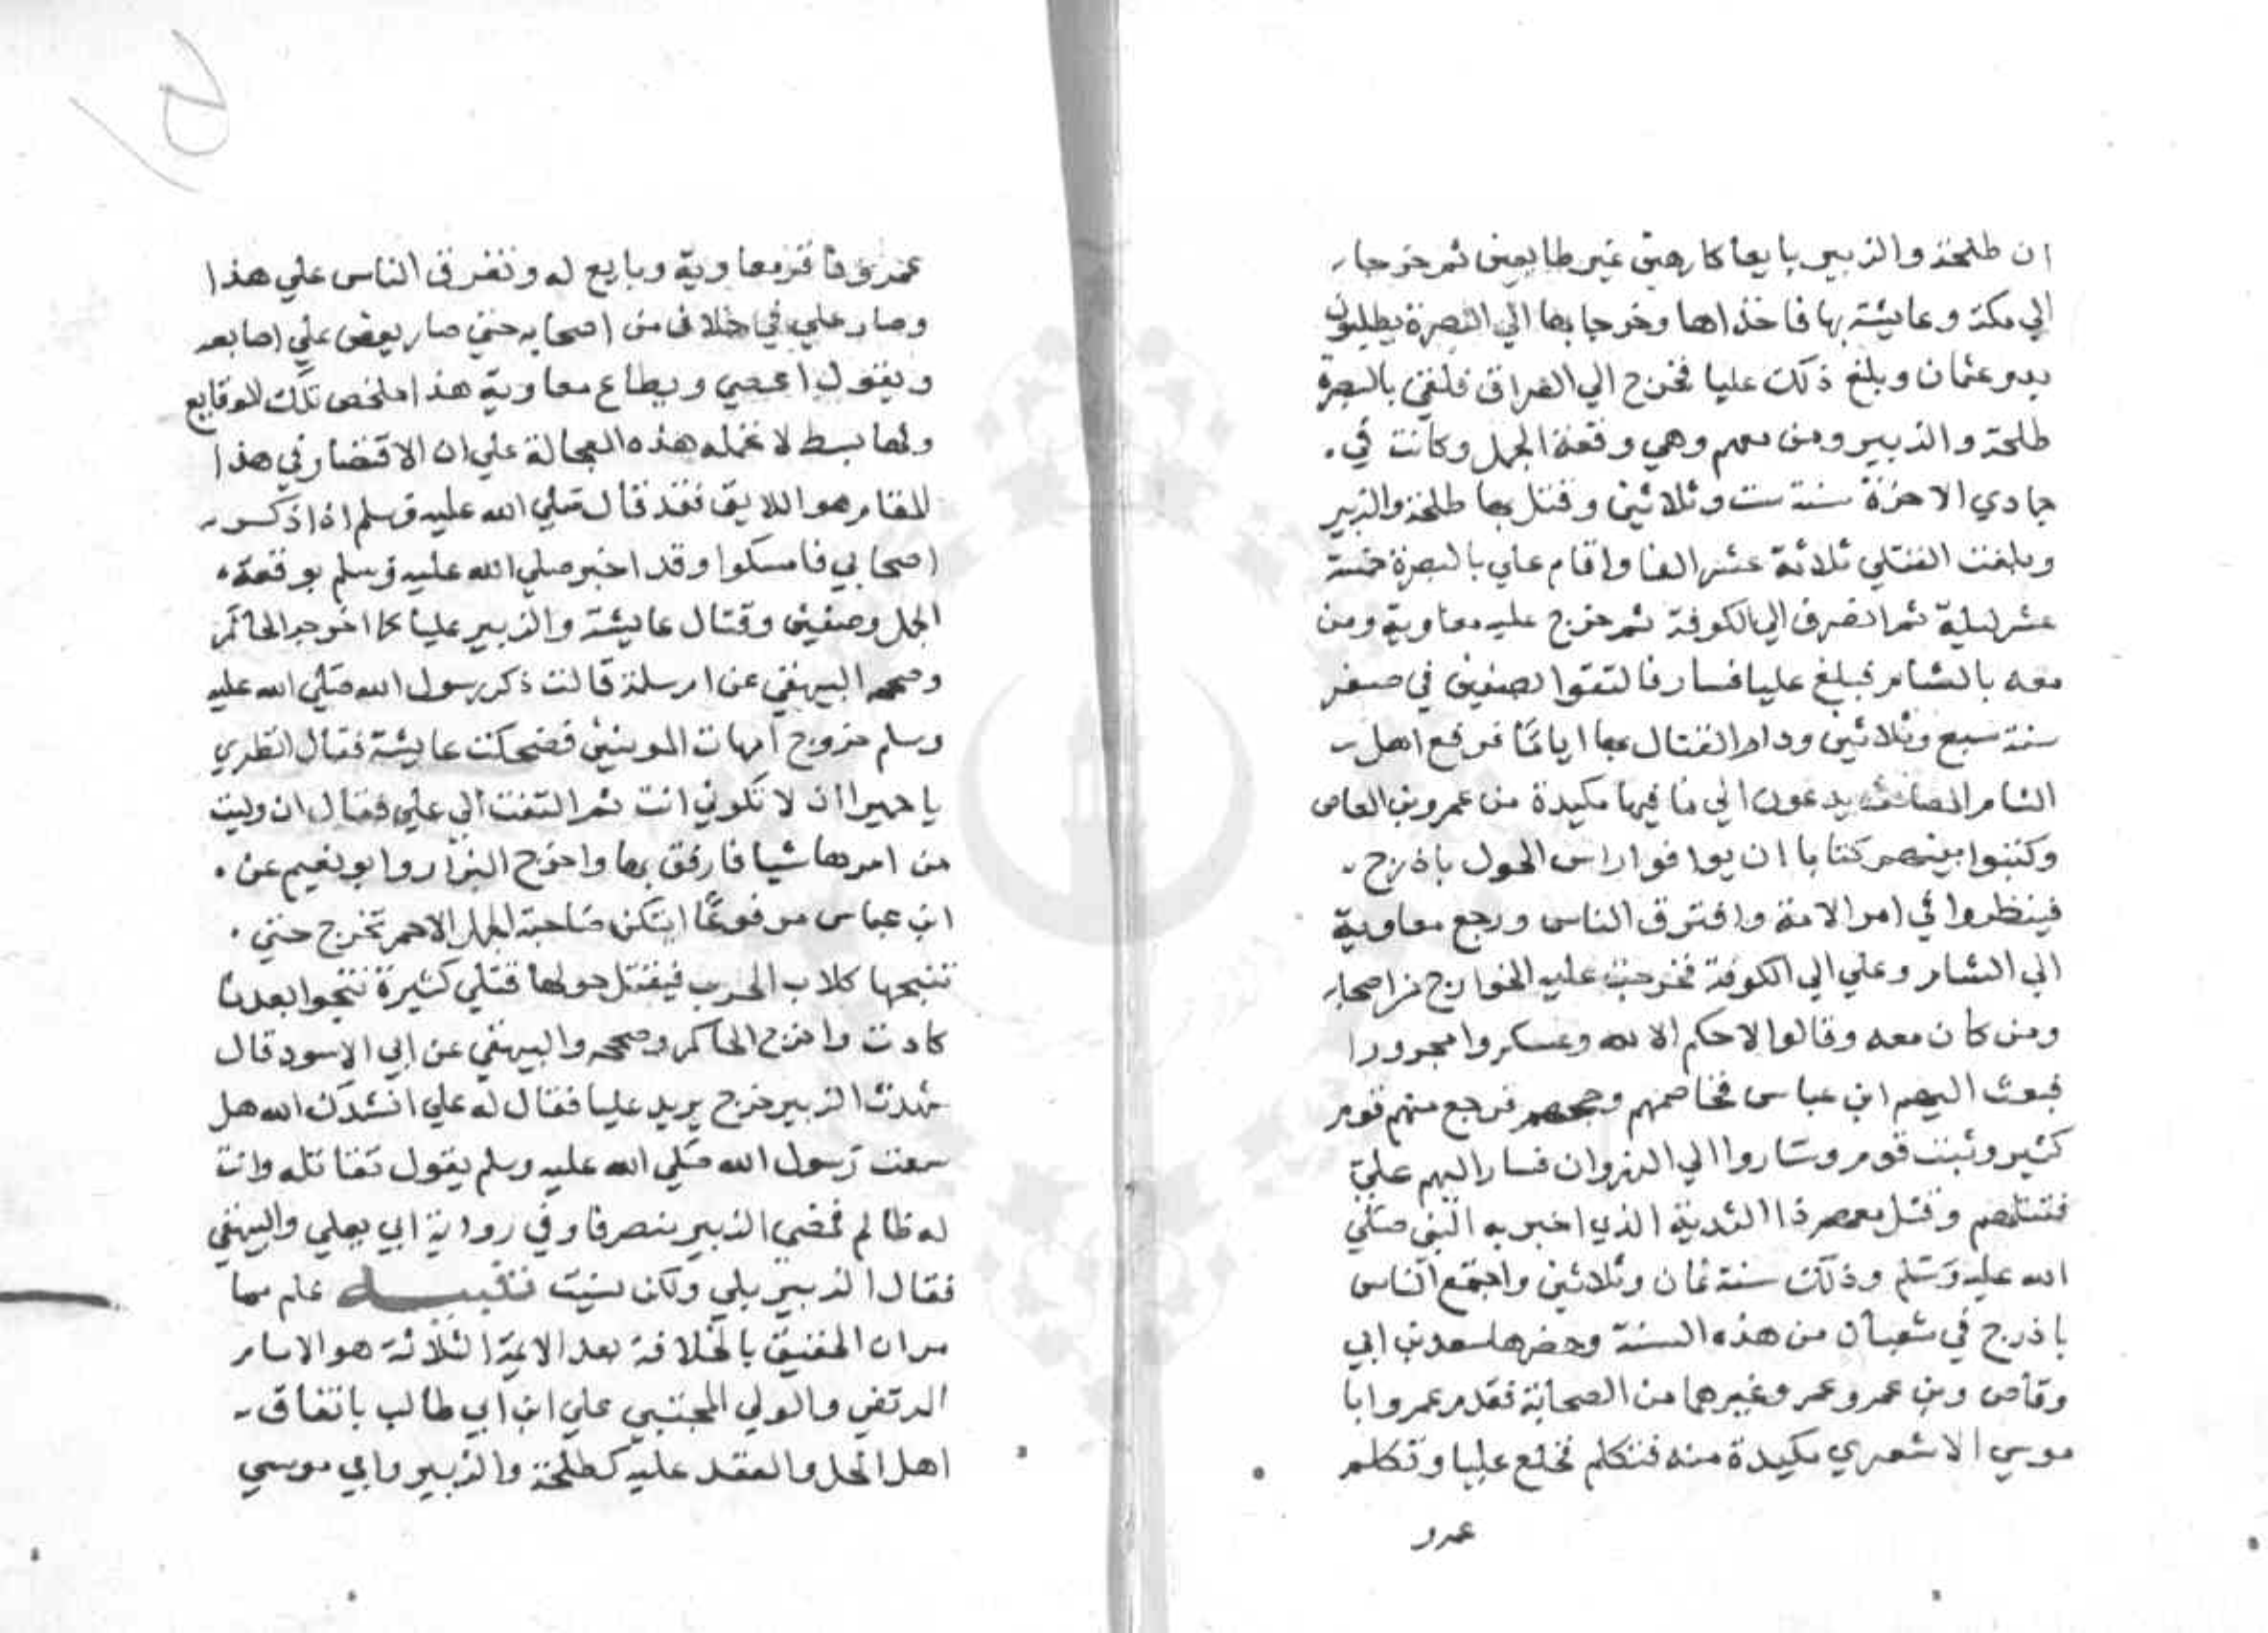 ان طلحة والزبير بايعا كارهين غير طايعين ثم خرجا
الي مكة وعايشة بها فاخذاها وخرجا بها الي البصرة يطلبون
بدم عثمان وبلغ ذلك عليا فخرج الي العراق فلقي بالبصرة
طلحة والزبير ومن معهم وهي وقعة الجمل وكانت في
جمادي الاخرة سنة ست وثلاثين وقتل بها طلحة والزبير
وبلغت القتلي ثلاثة عشر الفا واقام علي بالبصرة خمسة
عشر ليلة ثم انصرف الي الكوفة ثم خرج عليه معاوية ومن
معه بالشام فبلغ عليا فسار فالتقوا بصفين في صفر
سنة سبع وثلاثين ودام القتال بها اياما فرفع اهل
الشام المصاحف يدعون الي ما فيها مكيدة من عمرو بن العاص
وكتبوا بينهم كتابا ان يوافوا راس الحول باذرح
فينظروا في امر الامة وافترق الناس ورجع معاوية
الي الشام وعلي الي الكوفة فخرجت عليه الخوارج من اصحابه
ومن كان معه وقالوا لا حكم الا لله وعسكروا بحرورا
فبعث اليهم ابن عباس فخاصمهم وحجهم فرجع منهم قوم
كثير وثبت قوم وساروا الي النهروان فسار اليهم علي
فقتلهم وقتل معهم ذا الثدية الذي اخبر به النبي صلي
الله عليه وسلم وذلك سنة ثمان وثلاثين واجتمع الناس
باذرح في شعبان من هذه السنة وحضرها سعد بن ابي
وقاص وبن عمرو عمر وغيرهما من الصحابة فقدم عمرو ابا
موسي الاشعري مكيدة منه فتكلم فخلع عليا وتكلم
عمرو
عمرو فاقر معاوية وبايع له وتفرق الناس علي هذا
وصار علي في خلاف من اصحابه حتي صار يعض علي اصابعه
ويقول اعصي ويطاع معاوية هذا ملخص تلك الوقايع
ولها بسط لا تحمله هذه العجالة علي ان الاقتصار في هذا
المقام هو اللايق فقد قال صلي الله عليه وسلم اذا ذكر
اصحابي فامسكوا وقد اخبر صلي الله عليه وسلم بوقعة
الجمل وصفين وقتال عايشة والزبير عليا كما اخرجه الحاكم
وصححه البيهقي عن ام سلمة قالت ذكر رسول الله صلي الله عليه
وسلم خروج امهات المومنين فضحكت عايشة فقال انظري
يا حميرا ان لا تكوني انت ثم التفت الي علي فقال ان وليت
من امرها شيا فارفق بها واخرج البزار وابو نعيم عن
ابن عباس مرفوعا ايتكن صاحبة الجمل الاحمر تخرج حتي
تنبحها كلاب الحوب فيقتل حولها قتلي كثيرة تنجوا بعد ما
كادت واخرج الحاكم وصححه والبيهقي عن ابي الاسود قال
شهدت الزبير خرج يريد عليا فقال له علي انشدك الله هل
سمعت رسول الله صلي الله عليه وسلم يقول تقاتله وانت
له ظالم فمضي الزبير منصرفا وفي رواية ابي يعلي والبيهقي
فقال الزبير بلي ولكن نسيت تنبيه علم مما
مر ان الحقيق بالخلافة بعد الايمة الثلاثة هو الامام
المرتضي والولي المجتبي علي ابن ابي طالب باتفاق
اهل الحل والعقد عليه كطلحة والزبير وابي موسي